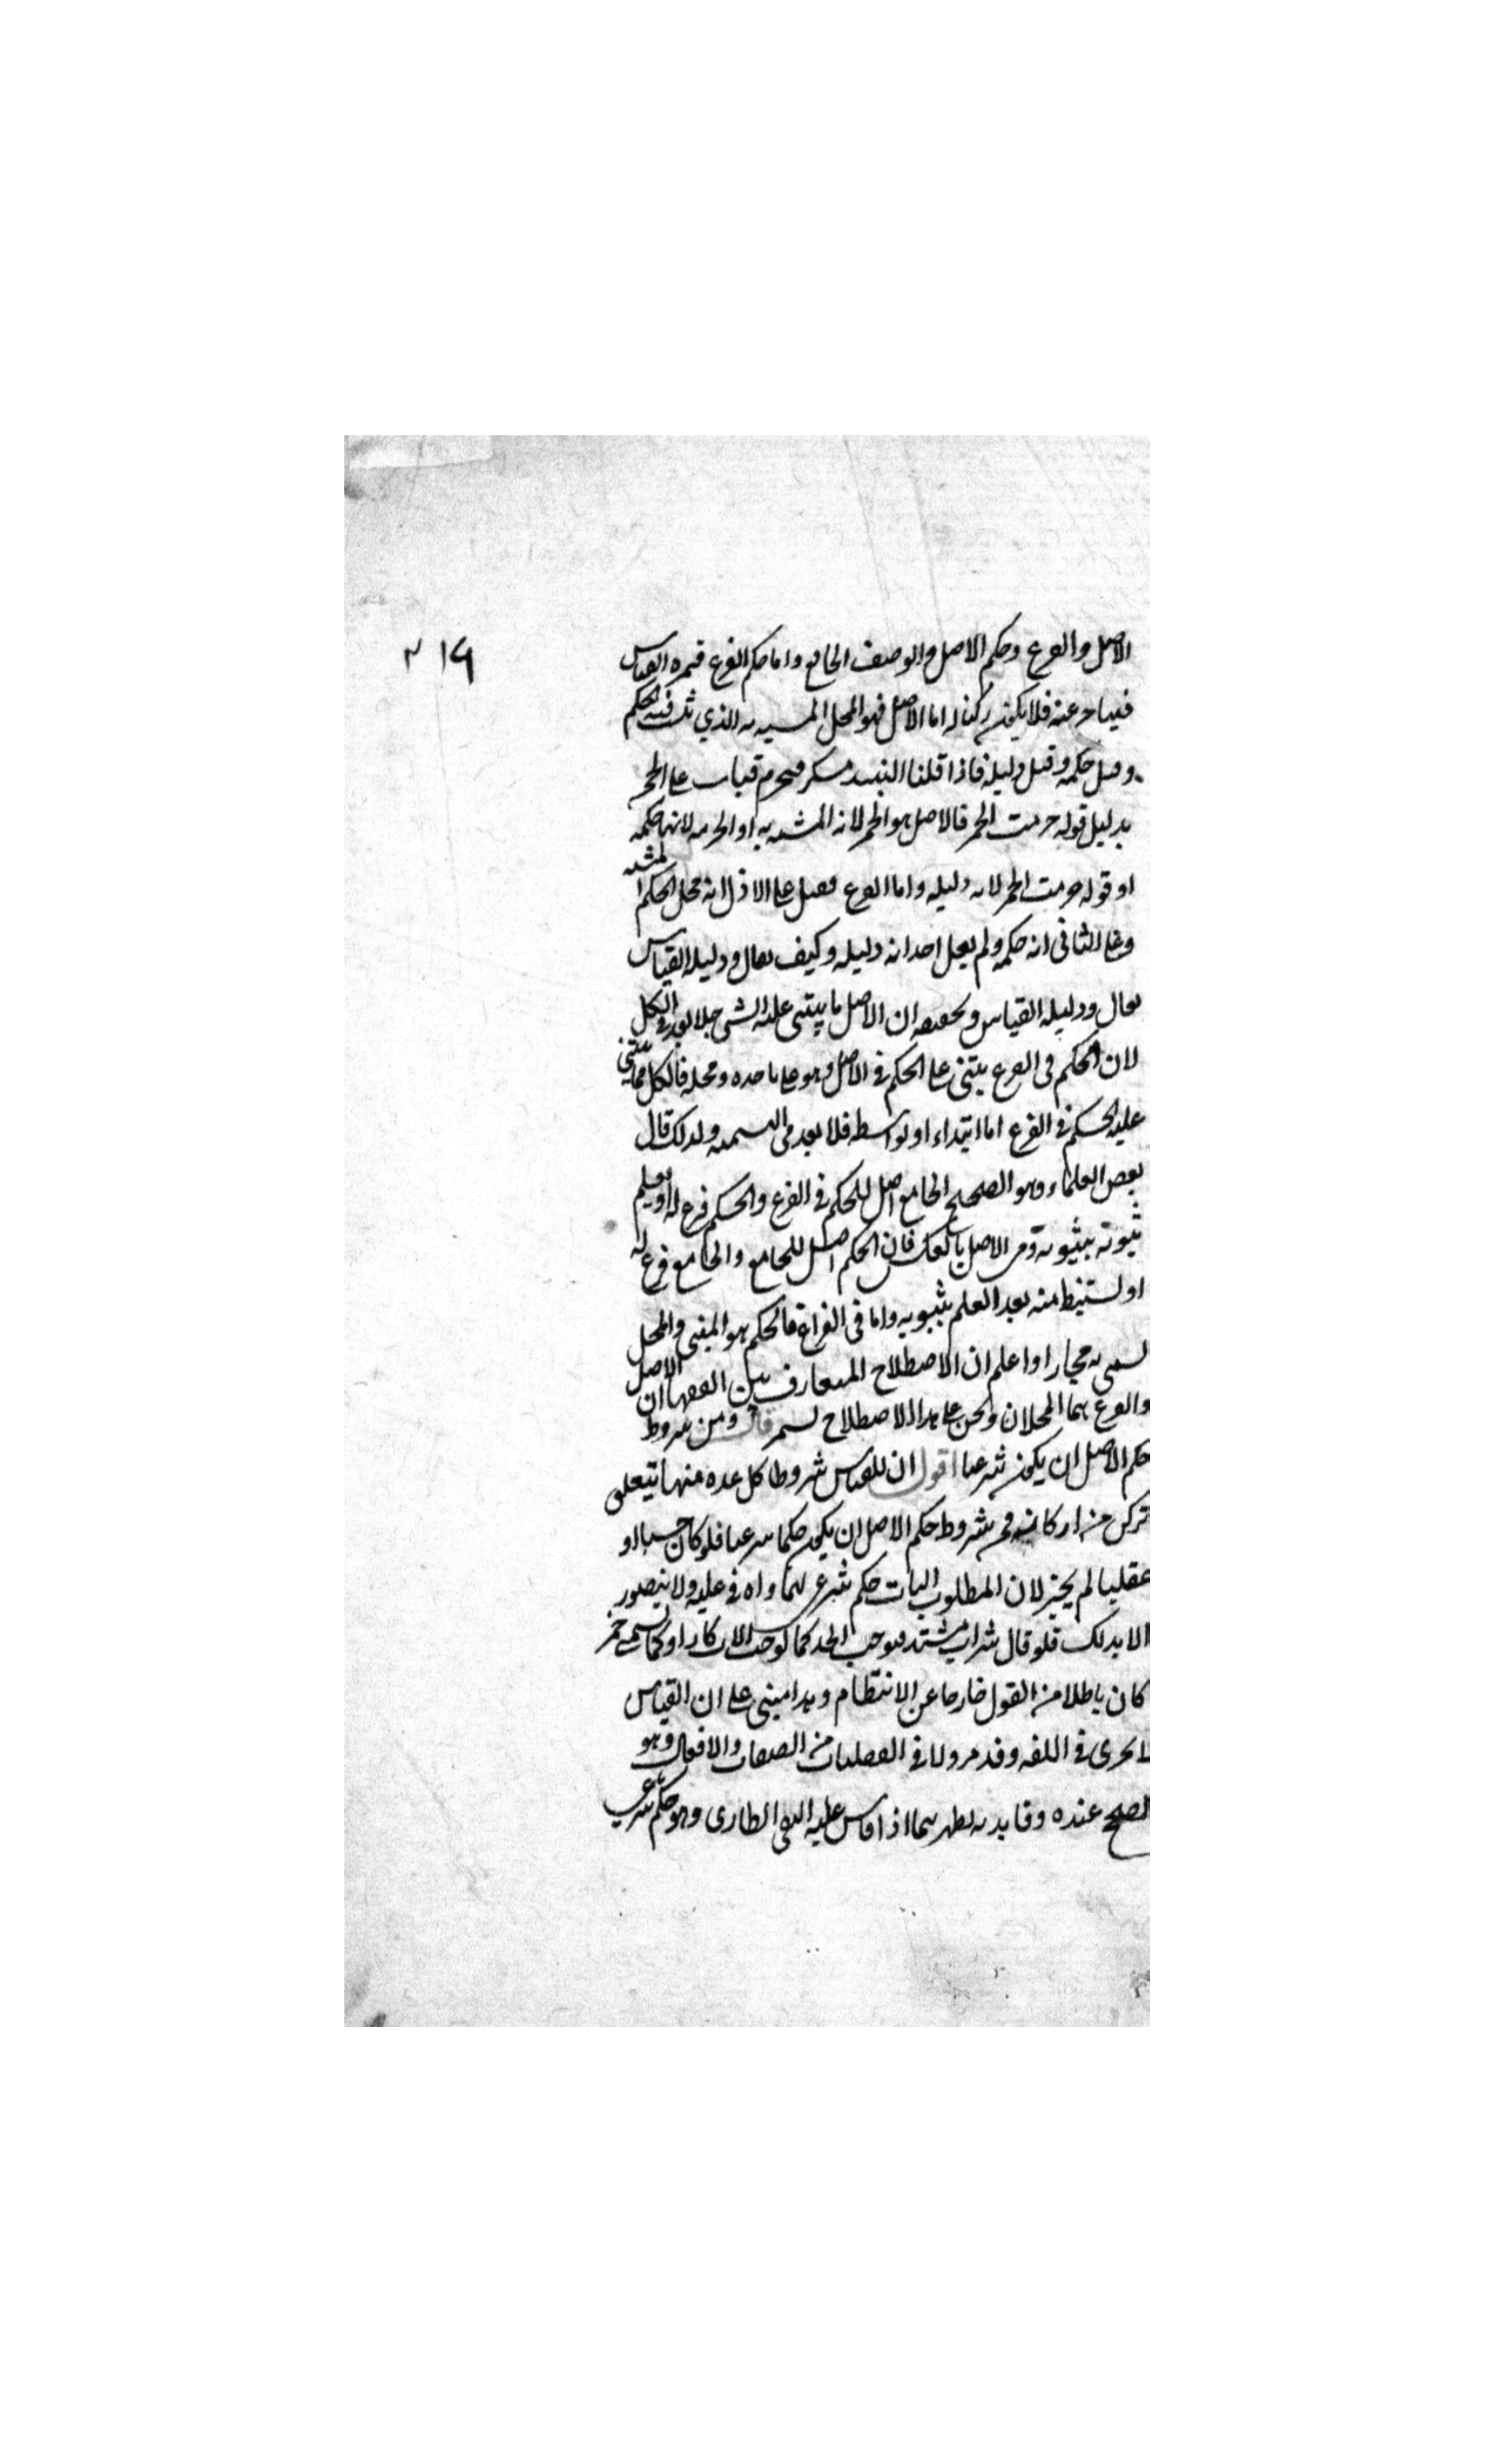 ٣١٩
الاصل والفرع وحكم الاصل والوصف الجامع واما حكم الفرع فثمرة القياس
فيتاخر عنه فلا يكون ركنا له اما الاصل فهو المحل المشبه به الذي ثبت فيه الحكم
وقيل حكمه وقيل دليله فاذا قلنا النبيذ مسكر فيحرم قياسا على الخمر
بدليل قوله حرمت الخمر فالاصل هو الخمر لانه المشبه به او الحرمة لانها حكمه
او قوله حرمت الخمر لانه دليله واما الفرع فقيل على الاول انه محل الحكم المشبه
وعلى الثاني انه حكمه ولم يقل احد انه دليله وكيف يقال ودليله القياس
يقال ودليله القياس وتحقيقه ان الاصل ما يبتنى عليه الشي فلا بعد في الكل
لان الحكم في الفرع يبتنى على الحكم في الاصل وهو على ماخذه ومحله فالكل مما يبتنى
عليه الحكم في الفرع اما ابتداء او بواسطة فلا بعد في التسمية ولذلك قال
بعض العلماء وهو الصحيح الجامع اصل للحكم في الفرع والحكم فرع له اذ يعلم
ثبوته بثبوته وفي الاصل بالعكس فان الحكم اصل للجامع والجامع فرع له
اذ يستنبط منه بعد العلم بثبوته واما في الفرع فالحكم هو المبنى والمحل
يسمى به مجازا واعلم ان الاصطلاح المتعارف بين الفقها ان الاصل
والفرع هما المحلان ونحن على هذا الاصطلاح نستمر قال ومن شروط
حكم الاصل ان يكون شرعيا اقول ان للقياس شروطا كل عدة منها يتعلق
بركن من اركانه فمن شروط حكم الاصل ان يكون حكما شرعيا فلو كان حسيا او
عقليا لم يجز لان المطلوب اثبات حكم شرعي للمساواة في علته ولا يتصور
الا بذلك فلو قال شراب مشتد فيوجب الحد كما يوجب الاسكار او كما يسمى خمر
كان باطلا من القول خارجا عن الانتظام وهذا مبنى على ان القياس
لا يجرى في اللغة وقد مر ولا في العقليات من الصفات والافعال وهو
يصح عنده وفايدته تظهر فيما اذا قاس عليه النفي الطارى وهو حكم شرعي